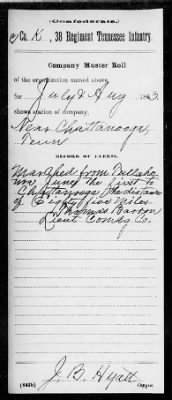 (Confederate.)
Co. K, 38 Regiment Tennessee Infantry.
Company Muster Roll
of the organization named above,
for July & Aug, 1863.
shows station of company,
Near Chattanooga,
Tenn
RECORD OF EVENTS.
Marched from Tullaho
ma June the first to
Chattanooga the distance
of Eighty five miles
Thomas Barron
Lieut Comdg Co.
J. B. Hyatt
Copyist.